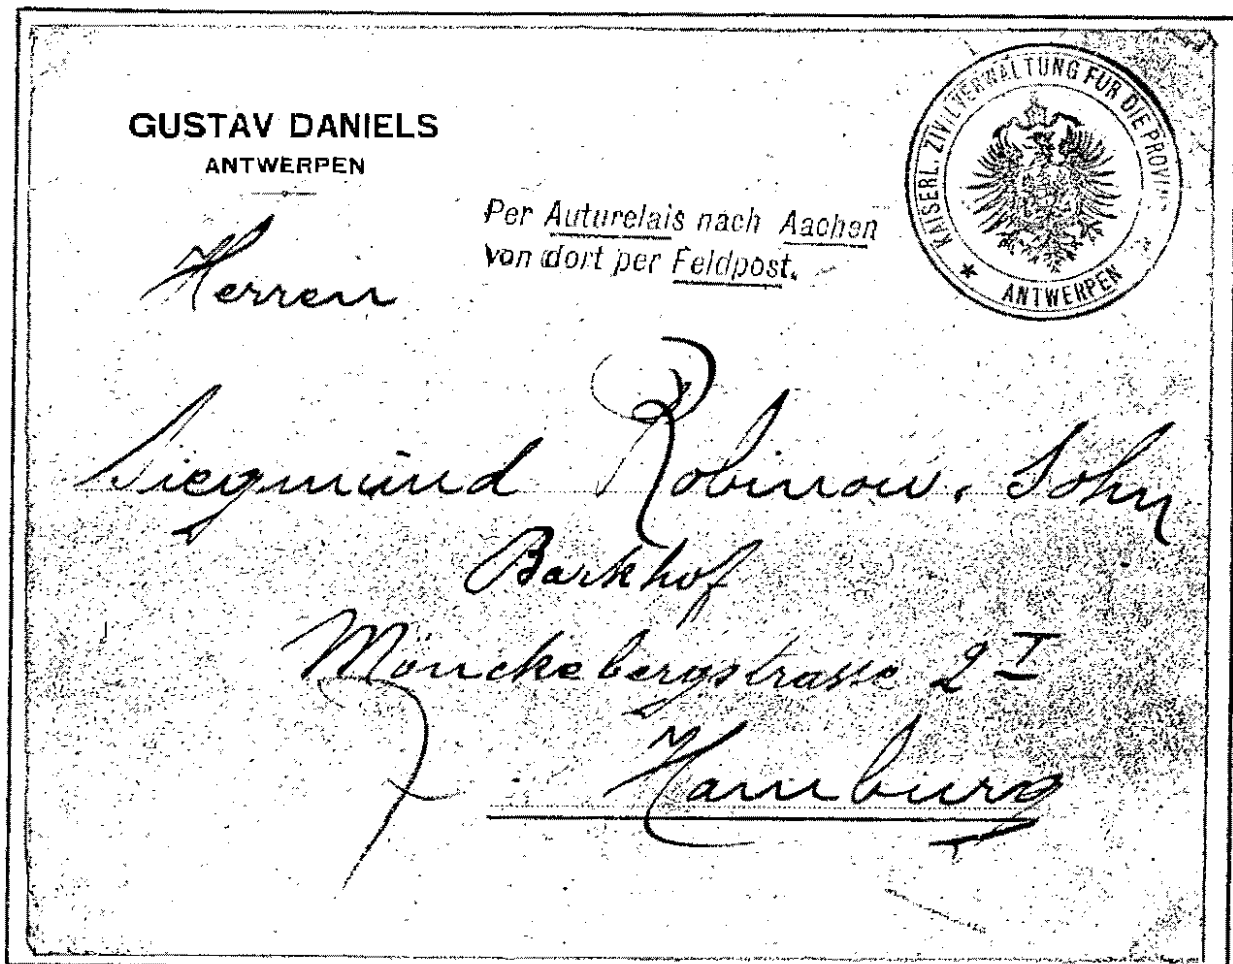 GUSTAV DANIELS
ANTWERPEN
Per Auturelais nach Aachen
von dort per Feldpost.
KAISERL. ZIVILVERWALTUNG FÜR DIE PROVI
★ ANTWERPEN
Herren
Siegmund Robinow, Sohn
Barkhof
Mönckebergstrasse 2 I
Hamburg